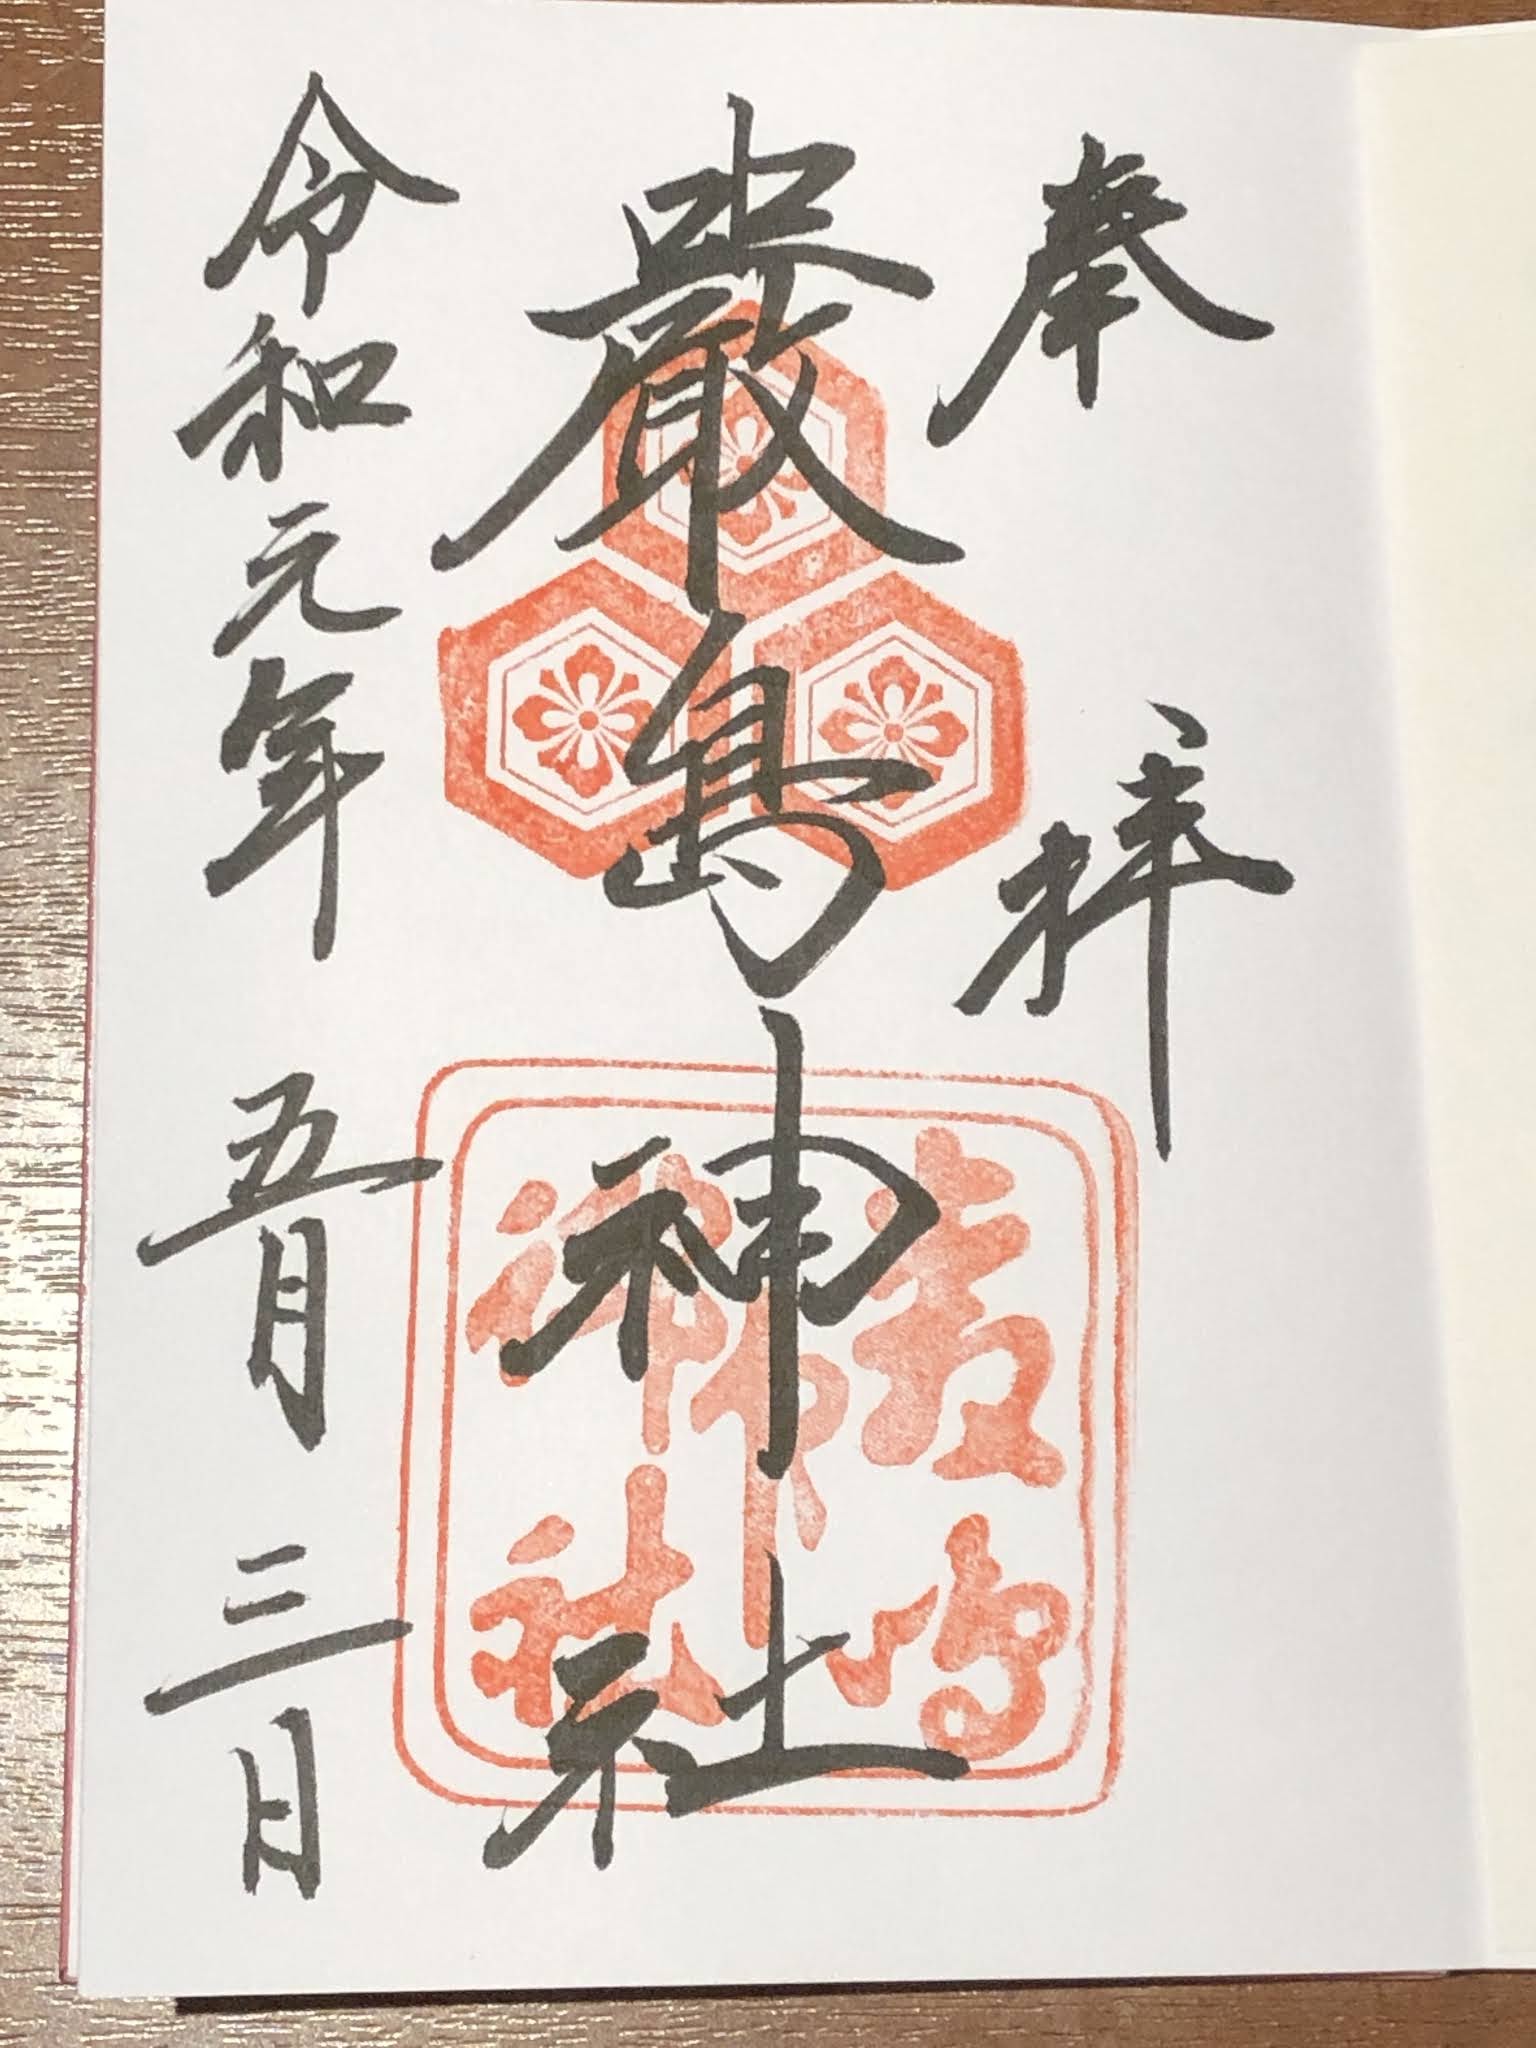 奉拝
嚴島神社
令和元年五月三日
嚴嶋
神社